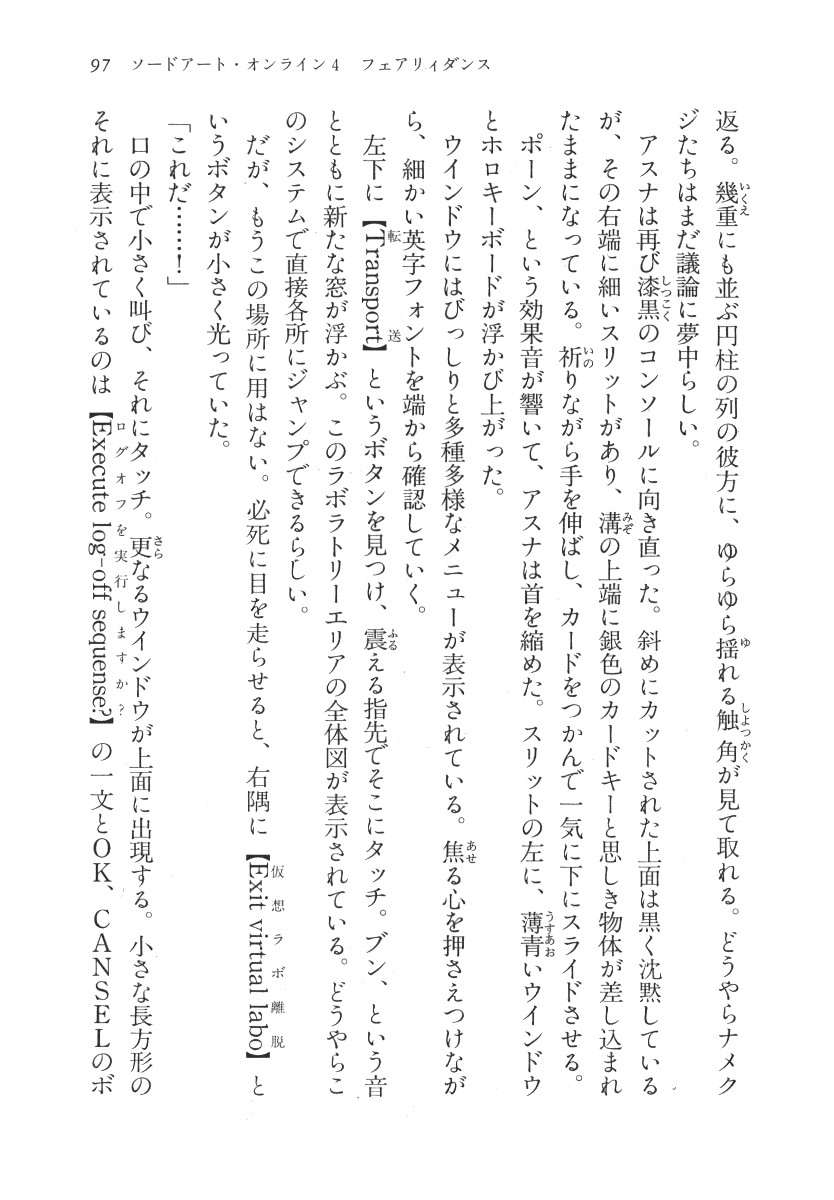 97 ソードアート・オンライン4 フェアリィダンス
返る。幾重にも並ぶ円柱の列の彼方に、ゆらゆら揺れる触角が見て取れる。どうやらナメク
いくえ
ゆ
しょっかく
ジたちはまだ議論に夢中らしい。
アスナは再び漆黒のコンソールに向き直った。斜めにカットされた上面は黒く沈黙している
しっこく
が、その右端に細いスリットがあり、溝の上端に銀色のカードキーと思しき物体が差し込まれ
みぞ
たままになっている。祈りながら手を伸ばし、カードをつかんで一気に下にスライドさせる。
いの
ポーン、という効果音が響いて、アスナは首を縮めた。スリットの左に、薄青いウインドウ
うすあお
とホロキーボードが浮かび上がった。
ウインドウにはびっしりと多種多様なメニューが表示されている。焦る心を押さえつけなが
あせ
ら、細かい英字フォントを端から確認していく。
左下に【Transport】というボタンを見つけ、震える指先でそこにタッチ。ブン、という音
転送
ふる
とともに新たな窓が浮かぶ。このラボラトリーエリアの全体図が表示されている。どうやらこ
のシステムで直接各所にジャンプできるらしい。
だが、もうこの場所に用はない。必死に目を走らせると、右隅に【Exit virtual labo】と
仮想ラボ離脱
いうボタンが小さく光っていた。
「これだ……！」
口の中で小さく叫び、それにタッチ。更なるウインドウが上面に出現する。小さな長方形の
さら
それに表示されているのは【Execute log-off sequense?】の一文とOK、CANSELのボ
ログオフを実行しますか？